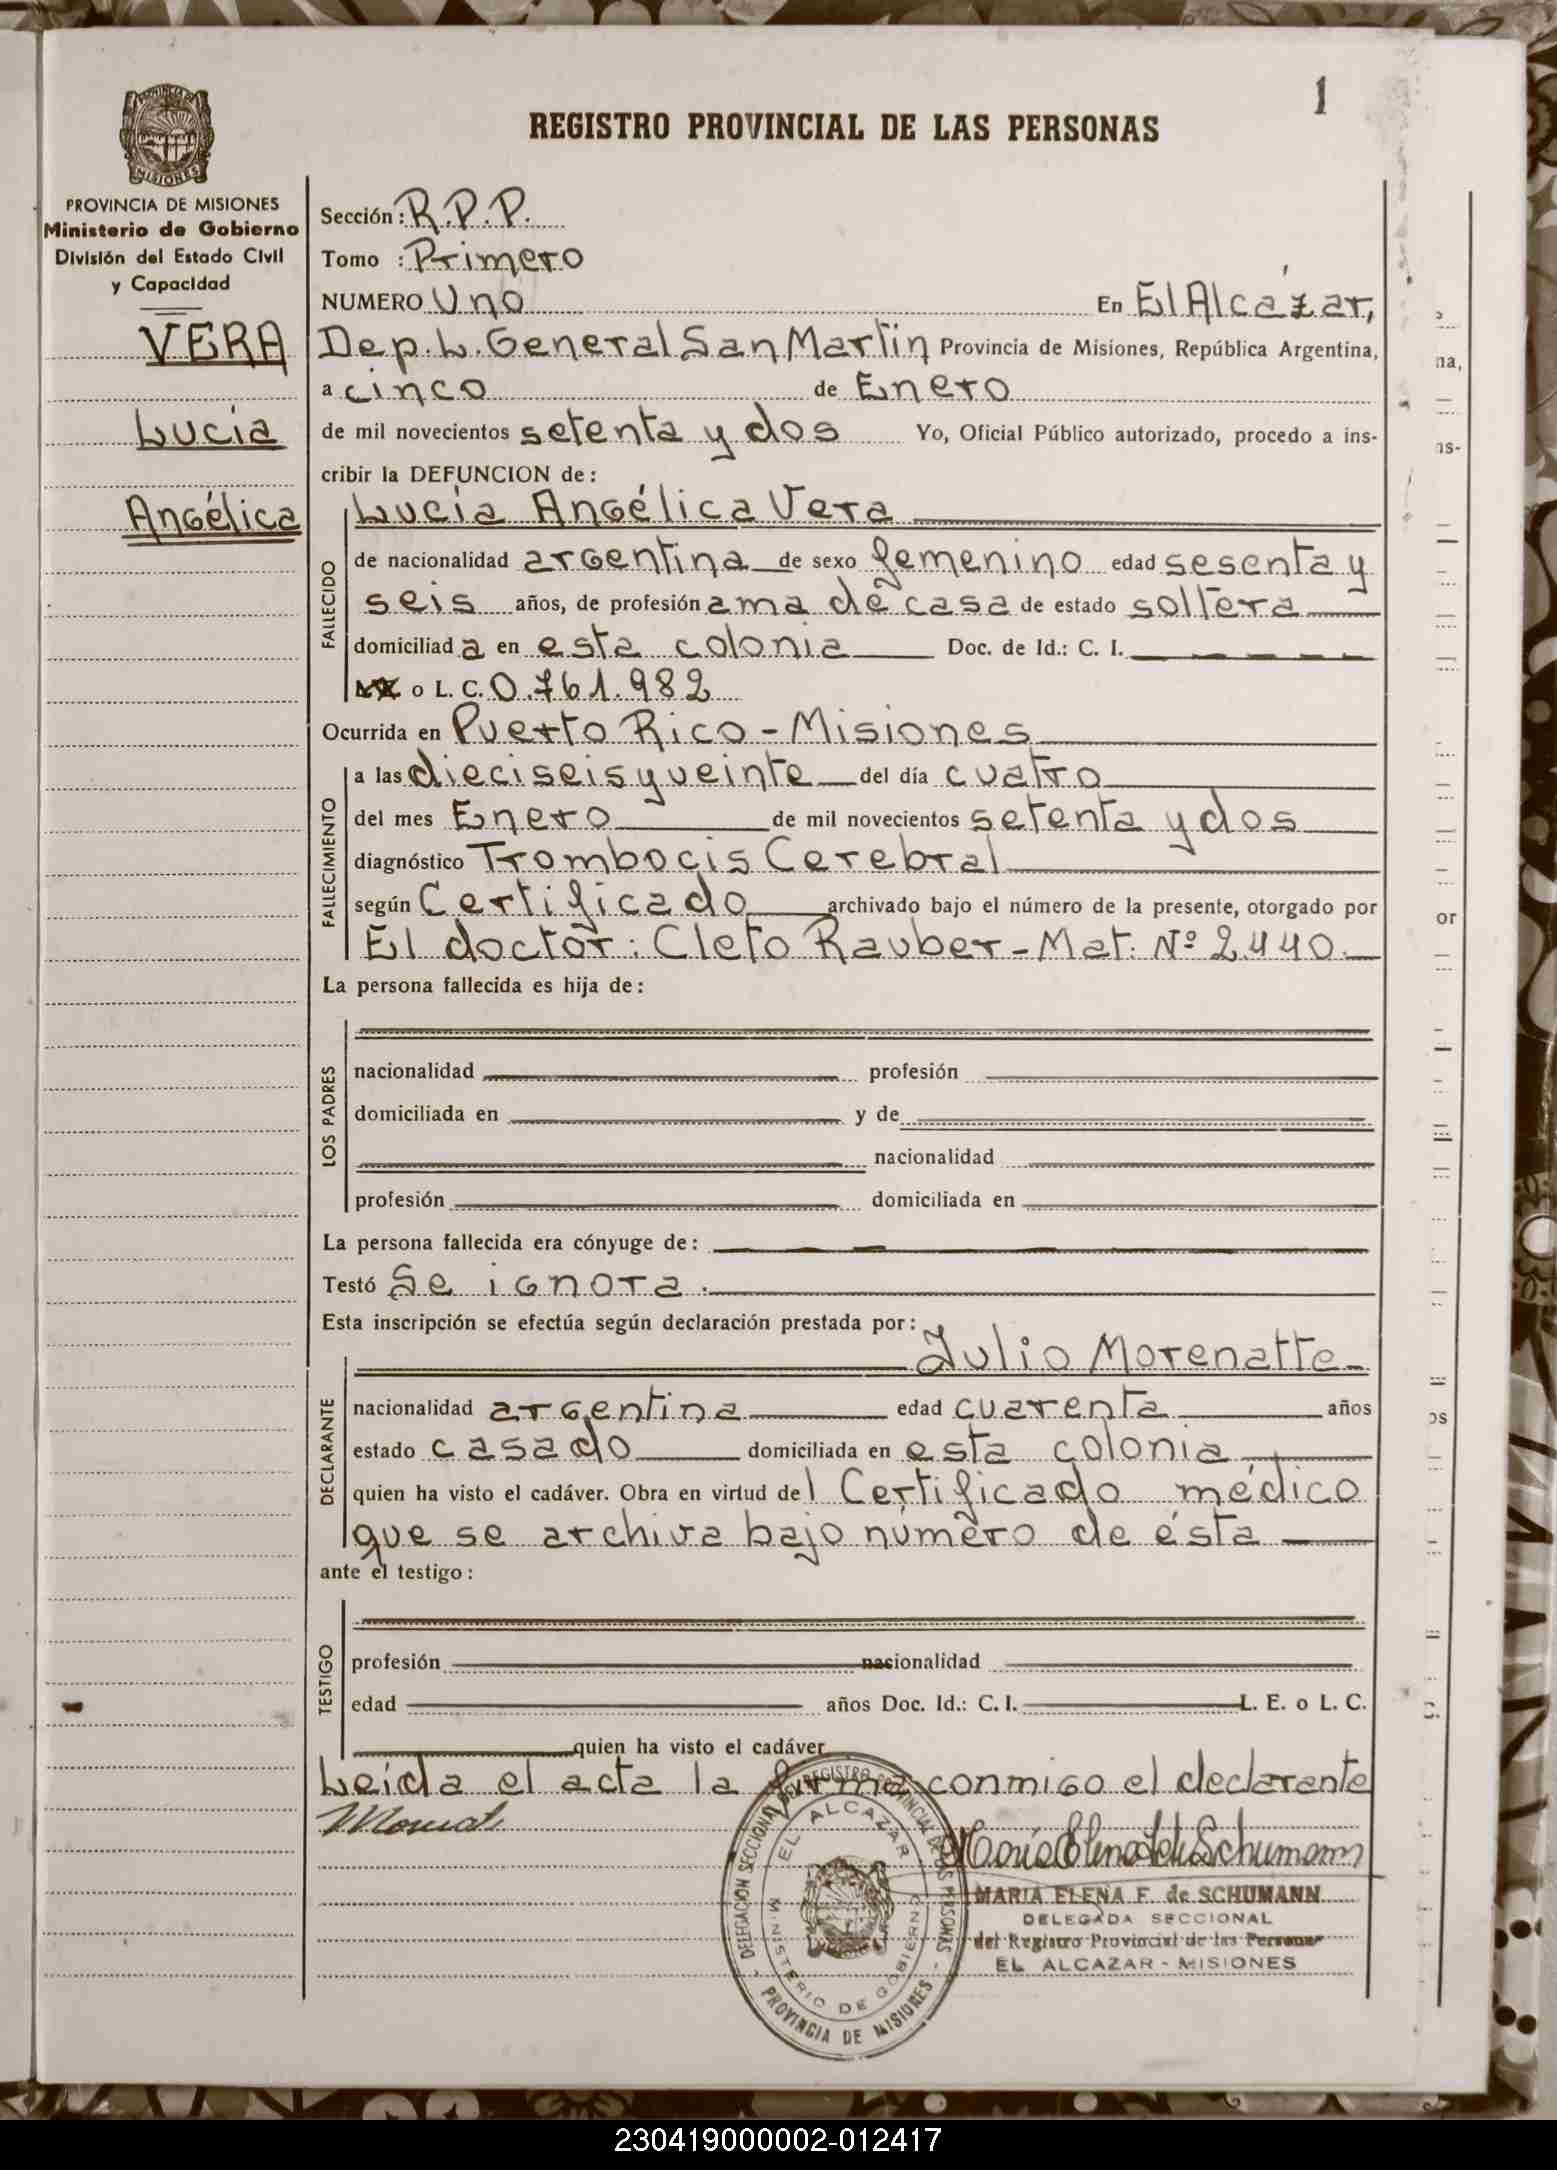 1
REGISTRO PROVINCIAL DE LAS PERSONAS
PROVINCIA DE MISIONES
MISIONES
PROVINCIA DE MISIONES
Ministerio de Gobierno
División del Estado Civil
y Capacidad
VERA
Lucía
Angélica
Sección: R.P.P.
Tomo : Primero
NUMERO Uno En El Alcázar,
Dep. L. General San Martín Provincia de Misiones, República Argentina,
a cinco de Enero
de mil novecientos setenta y dos Yo, Oficial Público autorizado, procedo a ins-
cribir la DEFUNCION de:
Lucía Angélica Vera
FALLECIDO
de nacionalidad argentina de sexo femenino edad sesenta y
seis años, de profesión ama de casa de estado soltera
domiciliada en esta colonia Doc. de Id.: C. I.
o L. C. 0.761.982
Ocurrida en Puerto Rico - Misiones
FALLECIMIENTO
a las dieciseis y veinte del día cuatro
del mes Enero de mil novecientos setenta y dos
diagnóstico Trombocis Cerebral
según Certificado archivado bajo el número de la presente, otorgado por
El doctor: Cleto Rauber - Mat: Nº 2.440.
La persona fallecida es hija de:
LOS PADRES
nacionalidad profesión
domiciliada en y de
nacionalidad
profesión domiciliada en
La persona fallecida era cónyuge de:
Testó Se ignora.
Esta inscripción se efectúa según declaración prestada por:
Julio Morenatte
DECLARANTE
nacionalidad argentina edad cuarenta años
estado casado domiciliada en esta colonia
quien ha visto el cadáver. Obra en virtud del Certificado médico
que se archiva bajo número de ésta
ante el testigo:
TESTIGO
profesión nacionalidad
edad años Doc. Id.: C. I. L. E. o L. C.
quien ha visto el cadáver
Leída el acta la firma conmigo el declarante
MARIA ELENA F. de SCHUMANN
DELEGADA SECCIONAL
del Registro Provincial de las Personas
EL ALCAZAR - MISIONES
DELEGACION SECCIONAL DEL REGISTRO PROVINCIAL DE LAS PERSONAS
EL ALCAZAR
MINISTERIO DE GOBIERNO
PROVINCIA DE MISIONES
na,
ns-
or
os
230419000002-012417